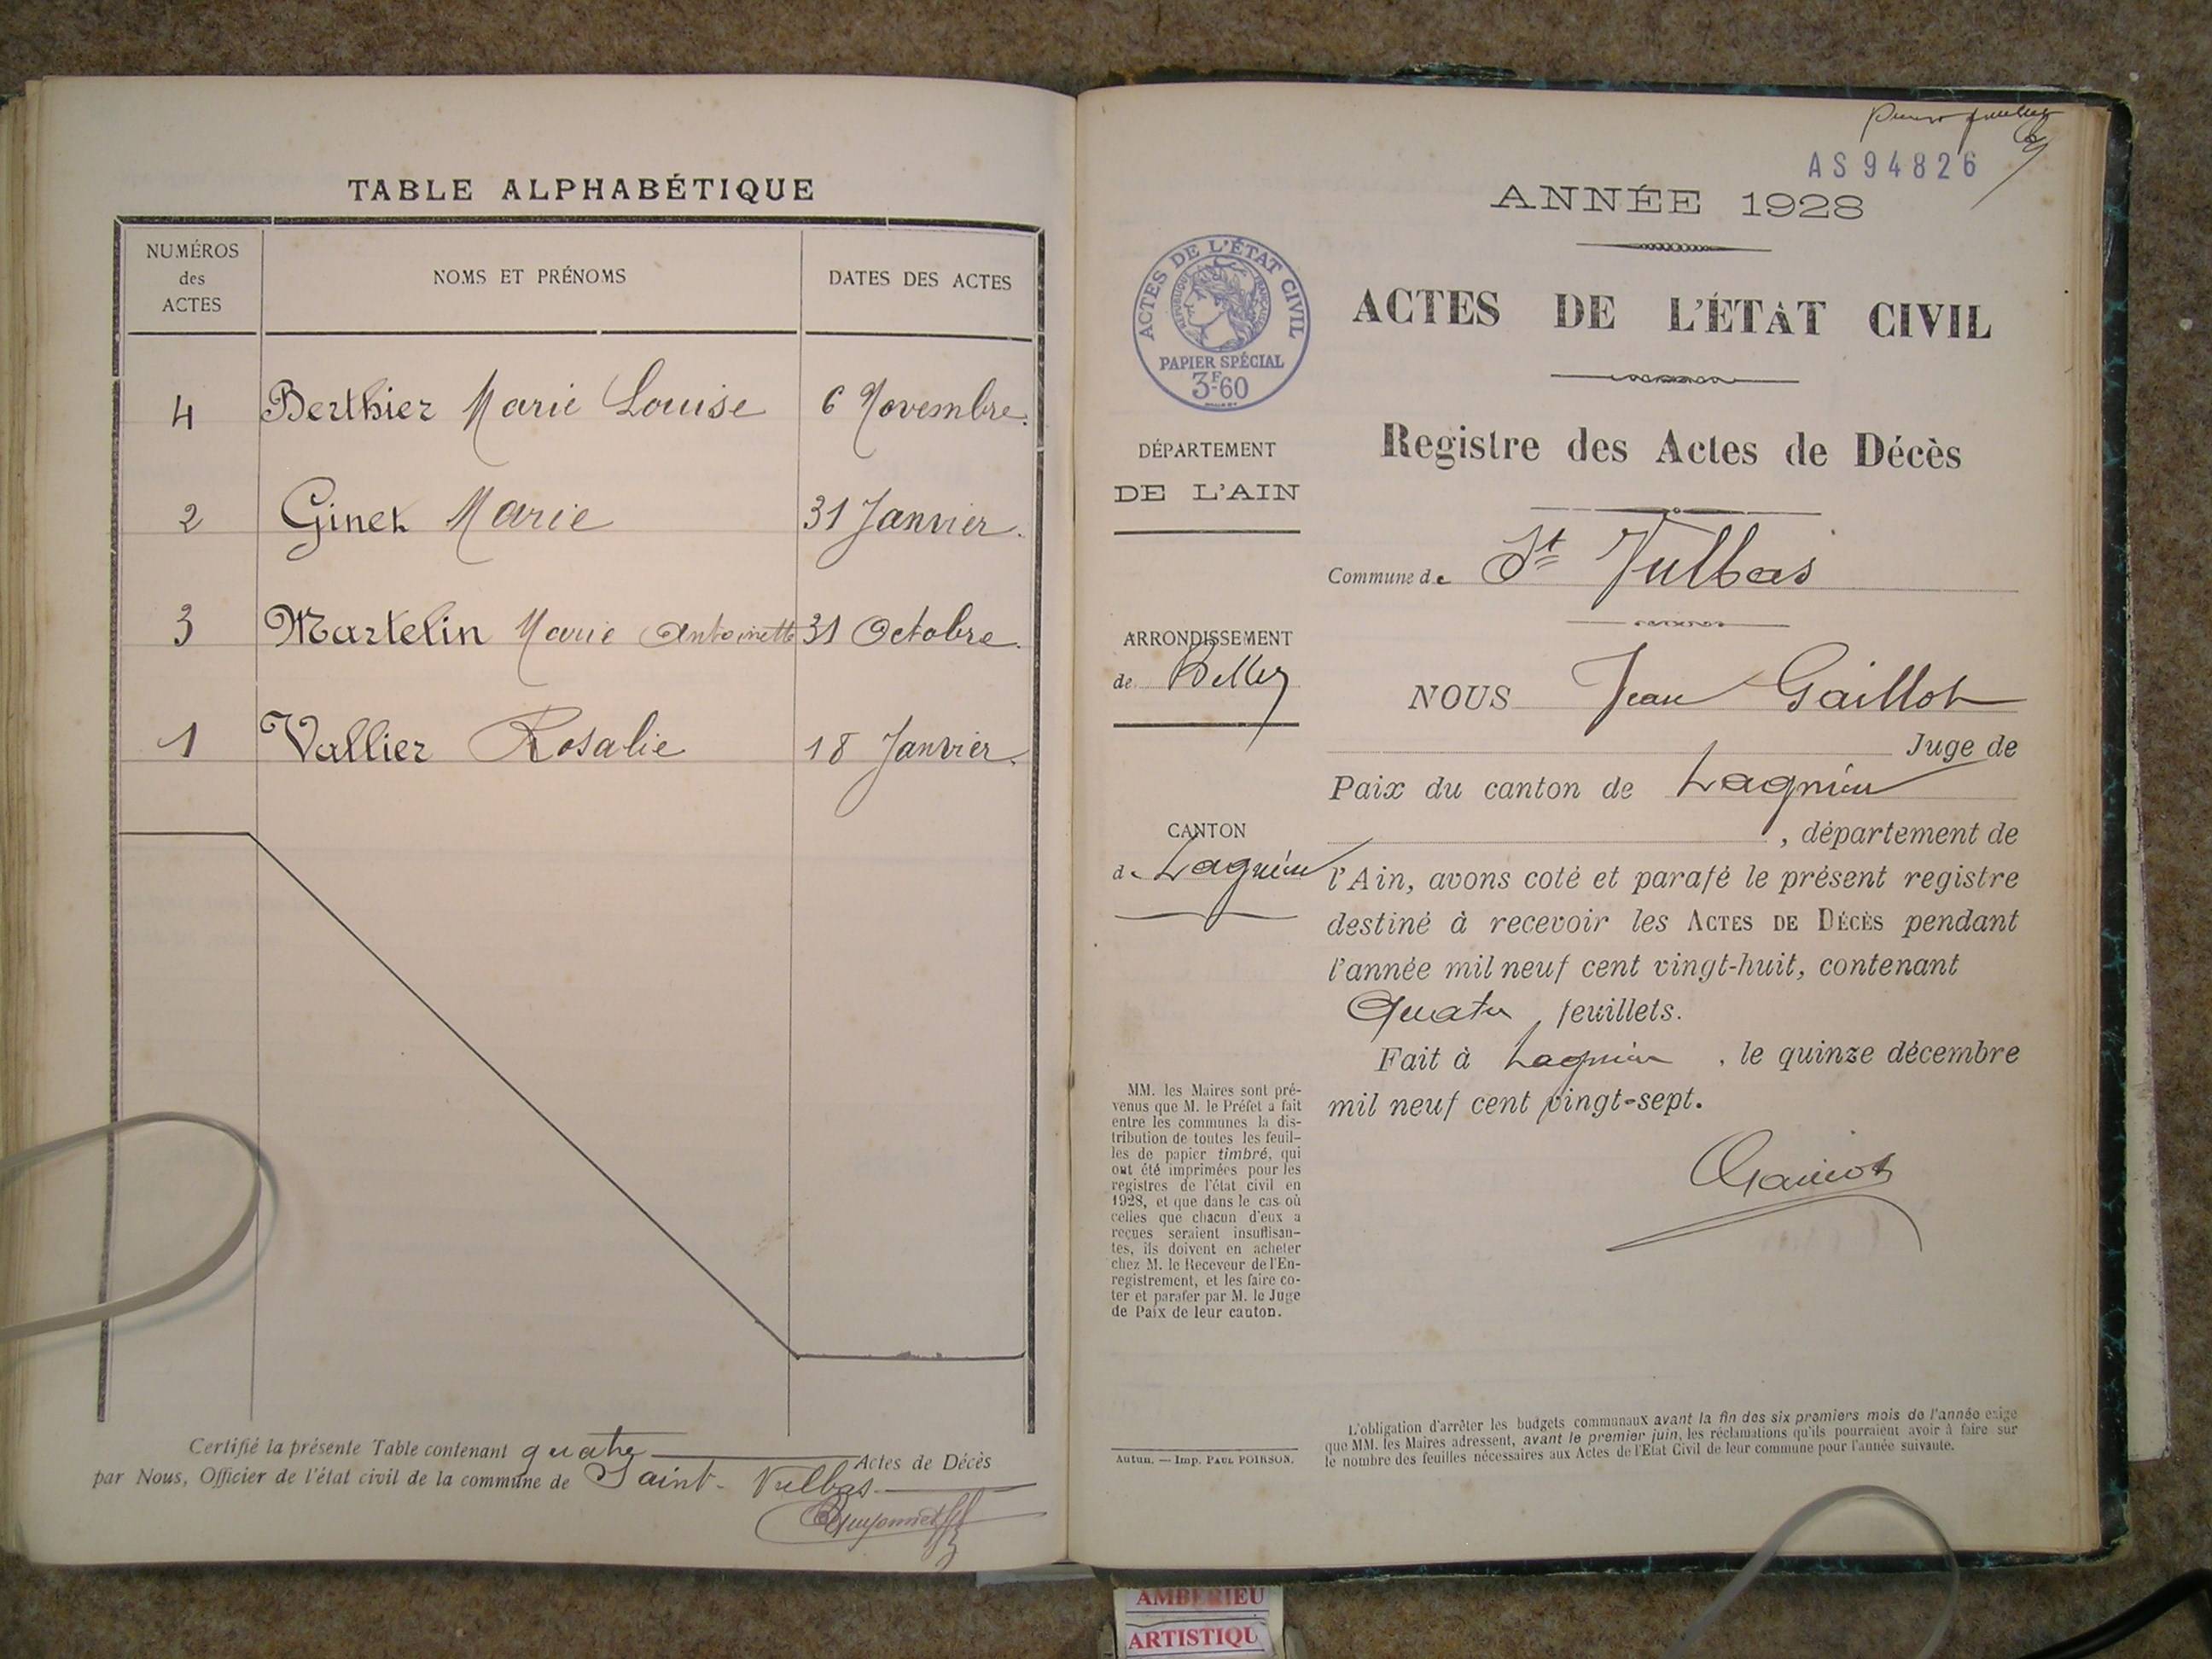 TABLE ALPHABÉTIQUE
NUMÉROS
des
ACTES
NOMS ET PRÉNOMS
DATES DES ACTES
4 Berthier Marie Louise 6 Novembre.
2 Ginet Marie 31 Janvier.
3 Martelin Marie Antoinette 31 Octobre.
1 Vallier Rosalie 18 Janvier.
Certifié la présente Table contenant quatre Actes de Décès
par Nous, Officier de l'état civil de la commune de Saint-Vulbas
AS94826
ANNÉE 1928
ACTES DE L'ÉTAT CIVIL
RÉPUBLIQUE FRANÇAISE
PAPIER SPÉCIAL
3F60
ACTES DE L'ÉTAT CIVIL
Registre des Actes de Décès
Commune de St Vulbas
DÉPARTEMENT
DE L'AIN
ARRONDISSEMENT
de Belley
CANTON
de Lagnieu
MM. les Maires sont pré-
venus que M. le Préfet a fait
entre les communes la dis-
tribution de toutes les feuil-
les de papier timbré, qui
ont été imprimées pour les
registres de l'état civil en
1928, et que dans le cas où
celles que chacun d'eux a
reçues seraient insuffisan-
tes, ils doivent en acheter
chez M. le Receveur de l'En-
registrement, et les faire co-
ter et parafer par M. le Juge
de Paix de leur canton.
Autun. — Imp. PAUL POIRSON.
NOUS Jean Gaillot
Juge de
Paix du canton de Lagnieu
, département de
l'Ain, avons coté et parafé le présent registre
destiné à recevoir les ACTES DE DÉCÈS pendant
l'année mil neuf cent vingt-huit, contenant
Quatre feuillets.
Fait à Lagnieu, le quinze décembre
mil neuf cent vingt-sept.
L'obligation d'arrêter les budgets communaux avant la fin des six premiers mois de l'année exige
que MM. les Maires adressent, avant le premier juin, les réclamations qu'ils pourraient avoir à faire sur
le nombre des feuilles nécessaires aux Actes de l'Etat Civil de leur commune pour l'année suivante.
AMBERIEU
ARTISTIQU